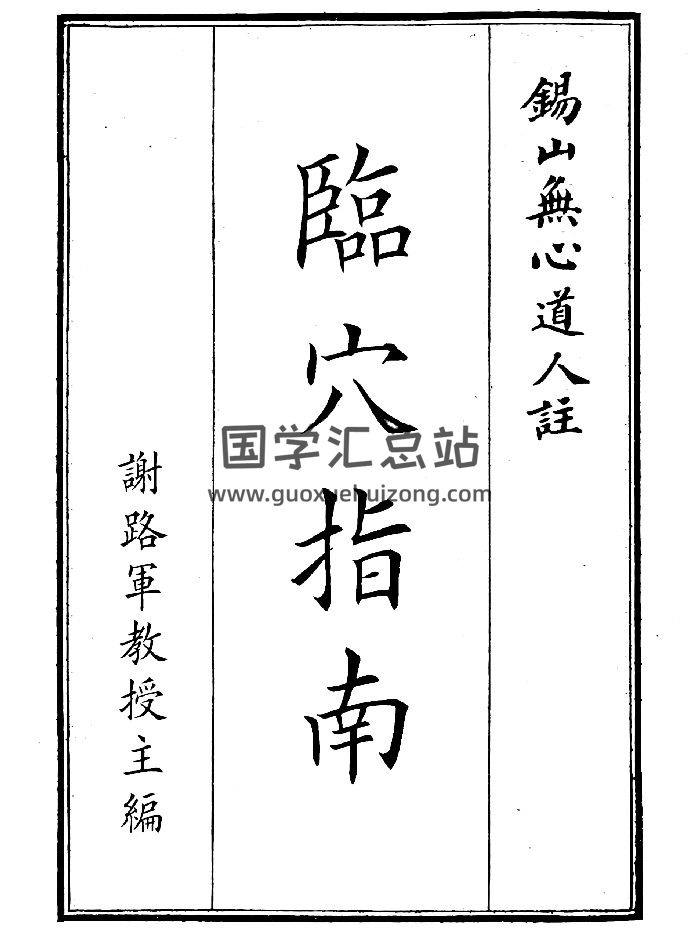 錫山無心道人註
臨穴指南
謝路軍教授主編
国学汇总站
www.guoxuehuizong.com